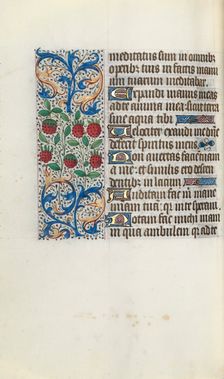 meditatus sum in omnibz
operibz tuis in factis manu
um tuarum meditabar.
Expandi manus meas
ad te anima mea sicut terra
sine aqua tibi
Velociter exaudi me dne
defecit spiritus meus
Non auertas faciem tuam
a me et similis ero descen
dentibz in lacum
Auditam fac m mane
miam tuā qr in te speraui
Notam fac michi uiam
in qua ambulem qr ad te